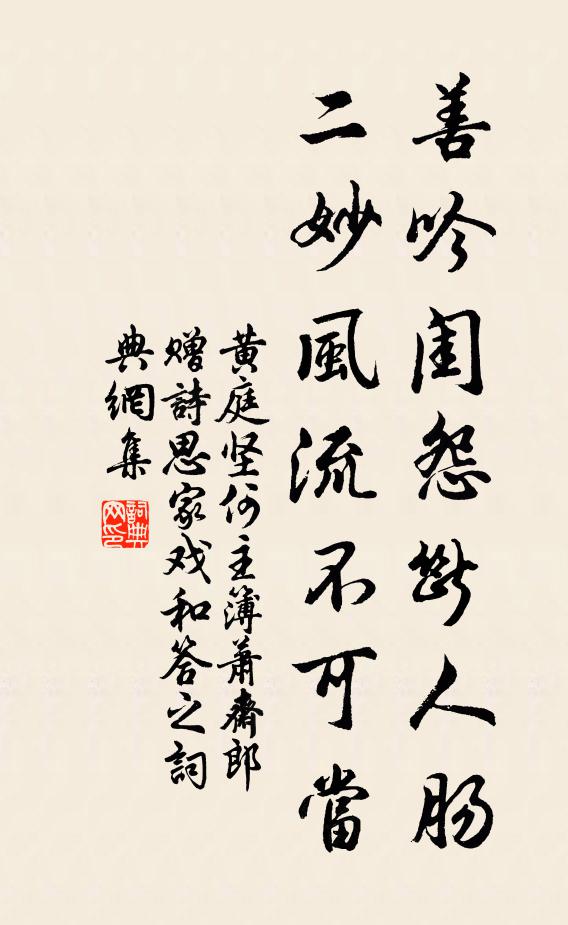 善吟闺怨斷人肠
二妙風流不可當
黄庭坚何主簿蕭齋郎
赠詩思家戏和答之詞
典網集
詞典网印